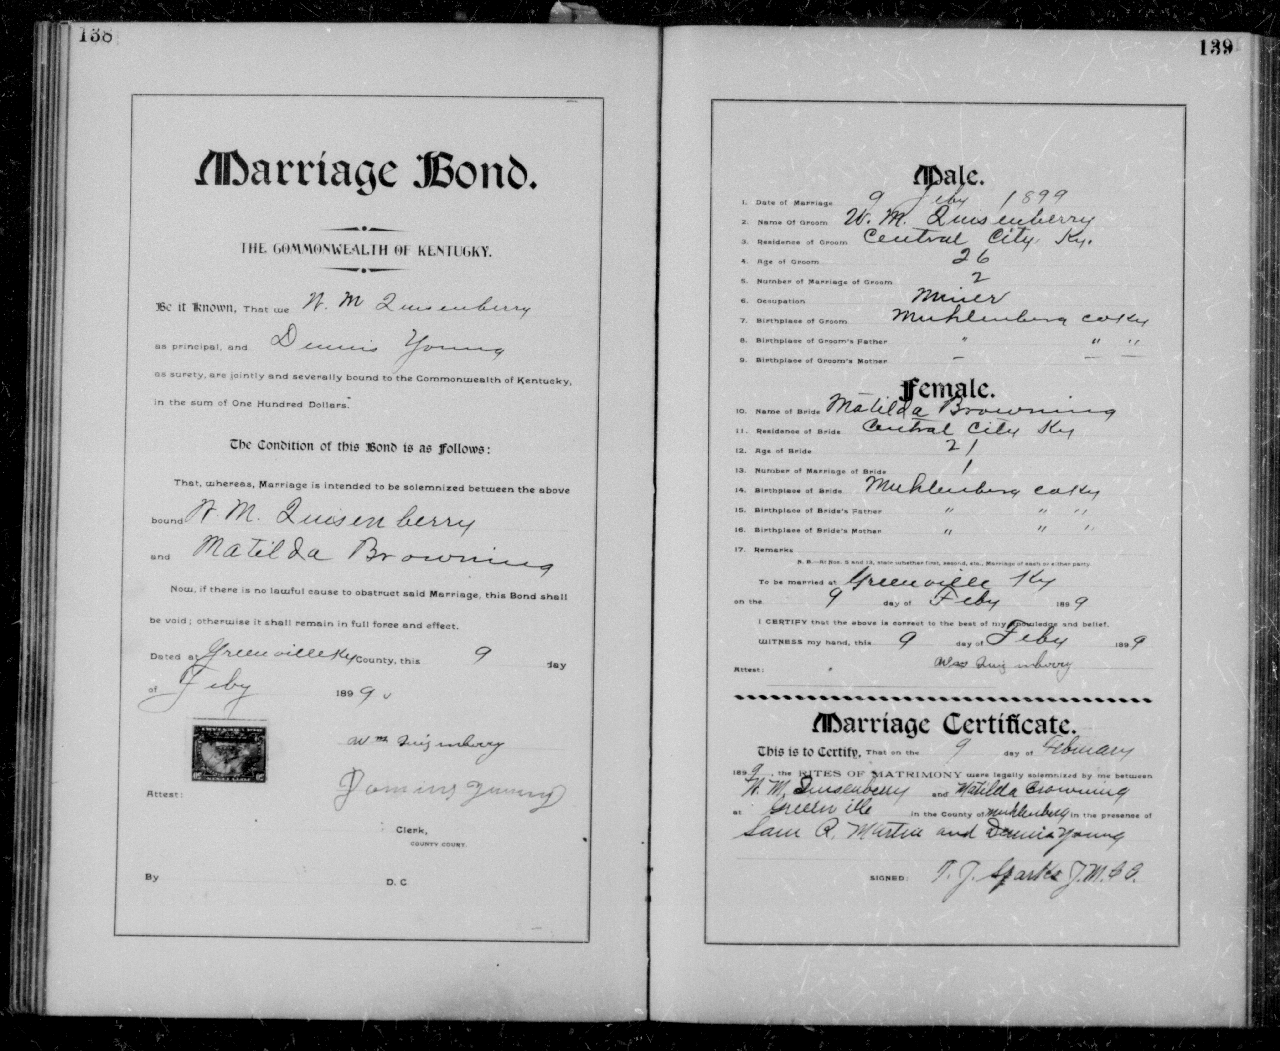 138
Marriage Bond.
THE COMMONWEALTH OF KENTUCKY.
Be it Known, That we W. M Quisenberry
as principal, and Dennis Young
as surety, are jointly and severally bound to the Commonwealth of Kentucky,
in the sum of One Hundred Dollars.
The Condition of this Bond is as Follows:
That, whereas, Marriage is intended to be solemnized between the above
bound W. M. Quisenberry
and Matilda Browning
Now, if there is no lawful cause to obstruct said Marriage, this Bond shall
be void; otherwise it shall remain in full force and effect.
Dated at Greenville Ky County, this 9 day
of Feby 1899
Wm Quizenberry
Young
Attest:
Clerk,
COUNTY COURT.
By D. C
139
Male.
1. Date of Marriage 9 Feby 1899
2. Name Of Groom W. M. Quisenberry
3. Residence of Groom Central City Ky.
4. Age of Groom 26
5. Number of Marriage of Groom 2
6. Occupation Miner
7. Birthplace of Groom Muhlenberg co Ky
8. Birthplace of Groom's Father " " "
9. Birthplace of Groom's Mother — — —
Female.
10. Name of Bride Matilda Browning
11. Residence of Bride Central City Ky
12. Age of Bride 21
13. Number of Marriage of Bride 1
14. Birthplace of Bride Muhlenberg co Ky
15. Birthplace of Bride's Father " " "
16. Birthplace of Bride's Mother " " "
17. Remarks
N. B.—At Nos. 5 and 13, state whether first, second, etc., Marriage of each or either party.
To be married at Greenville Ky
on the 9 day of Feby 1899
I CERTIFY that the above is correct to the best of my knowledge and belief.
WITNESS my hand, this 9 day of Feby 1899
Attest: " Wm Quizenberry
Marriage Certificate.
This is to Certify, That on the 9 day of February
1899, the RITES OF MATRIMONY were legally solemnized by me between
W. M. Quisenberry and Matilda Browning
at Greenville in the County of Muhlenberg in the presence of
Sam R. Martin and Dennis Young
SIGNED: T. J. Sparks J.M.C.C.